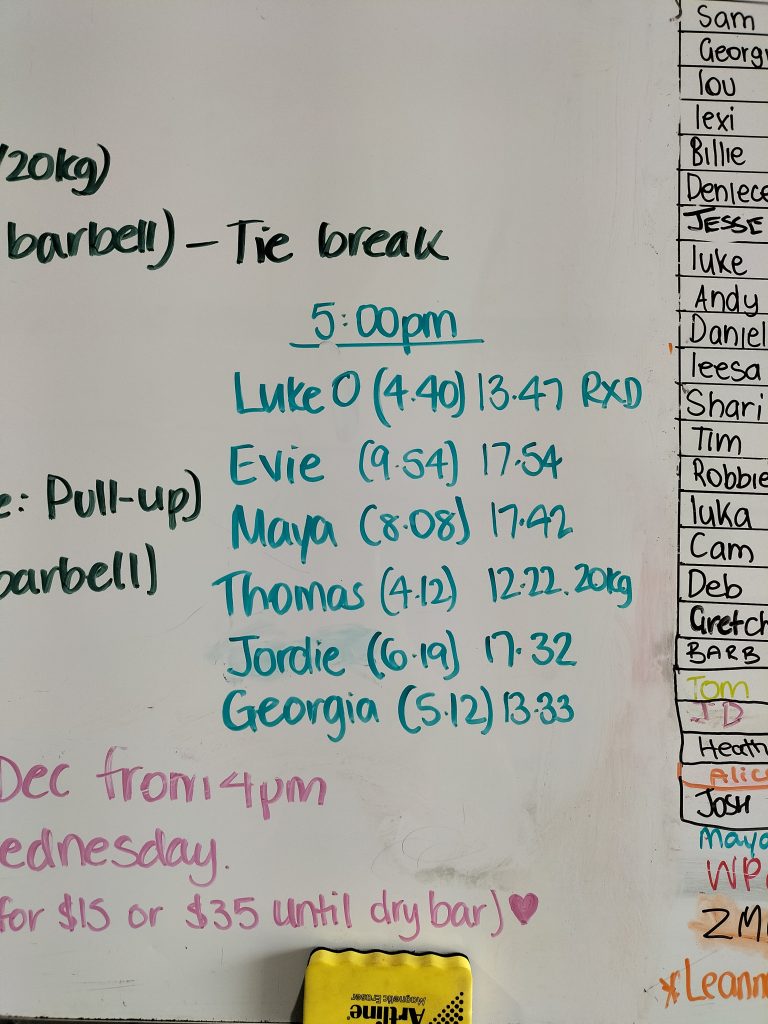 /20kg)
barbell) – Tie break
5:00pm
Luke O (4.40) 13.47 RXD
Evie (9.54) 17.54
e: Pull-up)
Maya (8.08) 17.42
barbell)
Thomas (4.12) 12.22. 20kg
Jordie (6.19) 17.32
Georgia (5.12) 13.33
Dec from 4pm
ednesday.
for $15 or $35 until dry bar) ♥
Sam
Georg
lou
lexi
Billie
Deniece
JESSE
luke
Andy
Daniel
leesa
Shari
Tim
Robbie
luka
Cam
Deb
Gretch
BARB
Tom
JD
Heath
Alic
JOSH
Maya
WP
ZM
*Leann
Artline
Magnetic Eraser